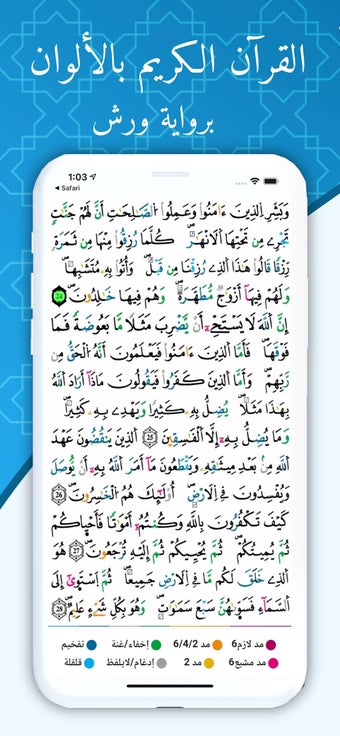 القرآن الكريم بالألوان
برواية ورش
1:03
Safari
وَبَشِّرِ اِ۬لذِينَ ءَامَنُواْ وَعَمِلُواْ اُ۬لصَّٰلِحَٰتِ أَنَّ لَهُمْ جَنَّٰتٖ
تَجْرِے مِن تَحْتِهَا اَ۬لَانْهَٰرُۖ كُلَّمَا رُزِقُواْ مِنْهَا مِن ثَمَرَةٖ
رِّزْقاٗ قَالُواْ هَٰذَا اَ۬لذِے رُزِقْنَا مِن قَبْلُۖ وَأُتُواْ بِهِۦ مُتَشَٰبِهاٗۖ
وَلَهُمْ فِيهَآ أَزْوَٰجٞ مُّطَهَّرَةٞۖ وَهُمْ فِيهَا خَٰلِدُونَۖ 24
إِنَّ اَ۬للَّهَ لَا يَسْتَحْيِۦٓ أَنْ يَّضْرِبَ مَثَلاٗ مَّا بَعُوضَةٗ فَمَا
فَوْقَهَاۖ فَأَمَّا اَ۬لذِينَ ءَامَنُواْ فَيَعْلَمُونَ أَنَّهُ اُ۬لْحَقُّ مِن
رَّبِّهِمْۖ وَأَمَّا اَ۬لذِينَ كَفَرُواْ فَيَقُولُونَ مَاذَآ أَرَادَ اَ۬للَّهُ
بِهَٰذَا مَثَلاٗۖ يُضِلُّ بِهِۦ كَثِيراٗ وَيَهْدِے بِهِۦ كَثِيراٗۖ
وَمَا يُضِلُّ بِهِۦٓ إِلَّا اَ۬لْفَٰسِقِينَۖ 25 اَ۬لذِينَ يَنقُضُونَ عَهْدَ
اَ۬للَّهِ مِنۢ بَعْدِ مِيثَٰقِهِۦ وَيَقْطَعُونَ مَآ أَمَرَ اَ۬للَّهُ بِهِۦٓ أَنْ يُّوصَلَ
وَيُفْسِدُونَ فِے اِ۬لَارْضِۖ أُوْلَٰٓئِكَ هُمُ اُ۬لْخَٰسِرُونَۖ 26
كَيْفَ تَكْفُرُونَ بِاللَّهِ وَكُنتُمُۥٓ أَمْوَٰتاٗ فَأَحْيَٰكُمْۖ
ثُمَّ يُمِيتُكُمْۖ ثُمَّ يُحْيِيكُمْۖ ثُمَّ إِلَيْهِ تُرْجَعُونَۖ 27 هُوَ
اَ۬لذِے خَلَقَ لَكُم مَّا فِے اِ۬لَارْضِ جَمِيعاٗۖ ثُمَّ اَ۪سْتَوَىٰٓ إِلَى
اَ۬لسَّمَآءِ فَسَوَّيٰهُنَّ سَبْعَ سَمَٰوَٰتٖۖ وَهُوَ بِكُلِّ شَےْءٍ عَلِيمٞۖ 28
مد لازم6 مد 6/4/2 إخفاء/غنة تفخيم
مد مشبع6 مد 2 إدغام/لايلفظ قلقلة